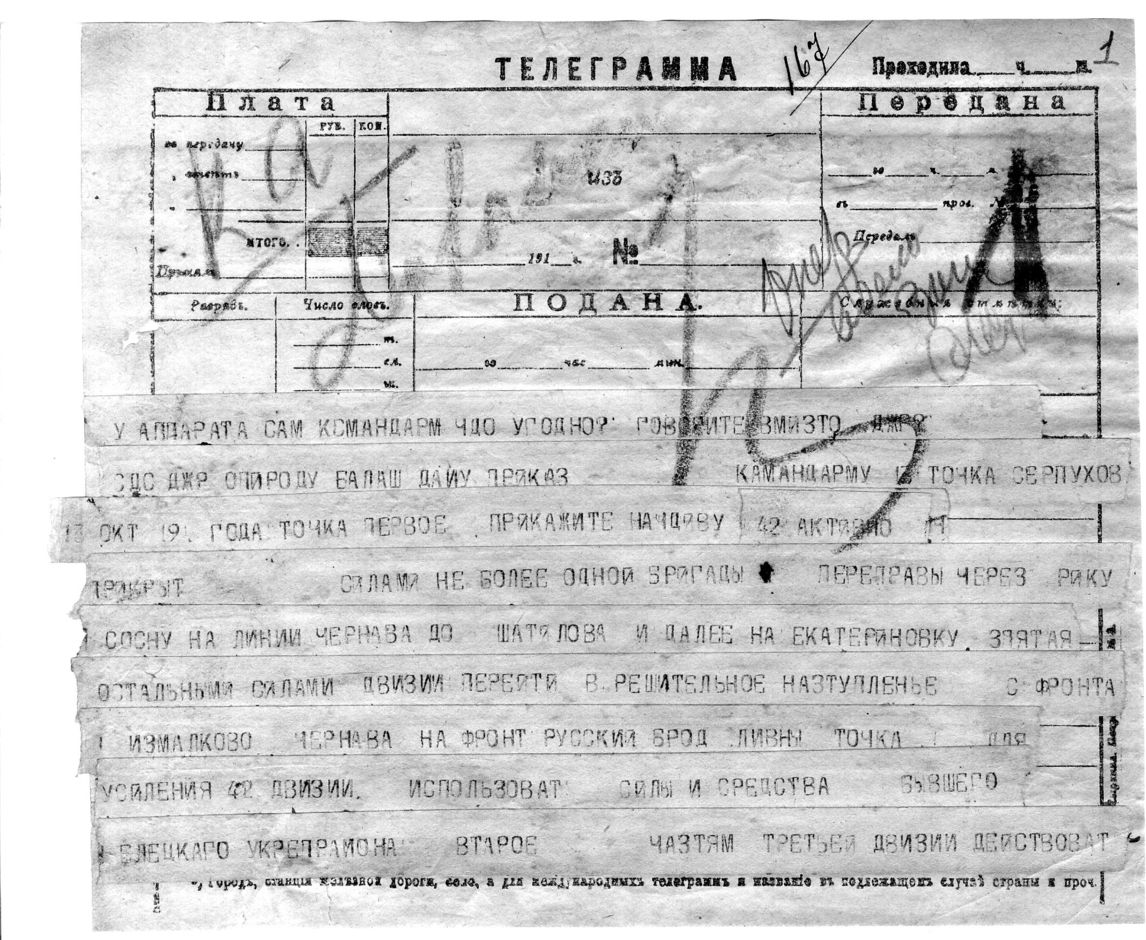 167
1
ТЕЛЕГРАММА
Проходила ч. м.
Плата
РУБ. КОП.
за передачу
ИТОГО. .
Принял
433
191 г. №
Передана
го ч. м.
въ пров. №
Передалъ
Разрядъ. Число словъ. ПОДАНА. Служебныя отмѣтки:
т.
сл.
ш.
го час. мин.
У АППАРАТА САМ КОМАНДАРМ ЧДО УГОДНО? ГОВОРИТЕ ВМИЗТО ДЖР?
СДС ДЖР ОПИРОДУ БАЛАШ ДАЙУ ПРИКАЗ КАМАНДАРМУ 13 ТОЧКА СЕРПУХОВ
13 ОКТ 19. ГОДА ТОЧКА ПЕРВОЕ ПРИКАЖИТЕ НАЧДИВУ 42 АКТИВНО П
ПРИКРЫТ СИЛАМИ НЕ БОЛЕЕ ОДНОЙ БРИГАДЫ ПЕРЕПРАВЫ ЧЕРЕЗ РИКУ
СОСНУ НА ЛИНИИ ЧЕРНАВА ДО ШАТИЛОВА И ДАЛЕЕ НА ЕКАТЕРИНОВКУ ЗПЯТАЯ
ОСТАЛЬНЫМИ СИЛАМИ ДВИЗИИ ПЕРЕЙТИ В РЕШИТЕЛЬНОЕ НАЗТУПЛЕНЬЕ С ФРОНТА
ИЗМАЛКОВО ЧЕРНАВА НА ФРОНТ РУССКИЙ БРОД ЛИВНЫ ТОЧКА ДЛЯ
УСИЛЕНИЯ 42 ДВИЗИИ. ИСПОЛЬЗОВАТ СИЛЫ И СРЕДСТВА БЫВШЕГО
ЕЛЕЦКАГО УКРЕПРАМОНА ВТАРОЕ ЧАЗТЯМ ТРЕТЬЕЙ ДВИЗИИ ДЕЙСТВОВАТ
*) Городъ, станція желѣзной дороги, село, а для международныхъ телеграммъ и названіе въ подлежащемъ случаѣ страны и проч.